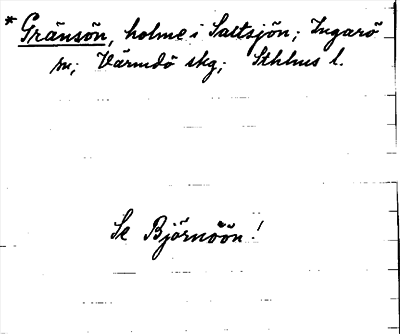 * Gränsön, holme i Saltsjön; Ingarö
sn; Värmdö skg; Sthlms l.
Se Björnöön!